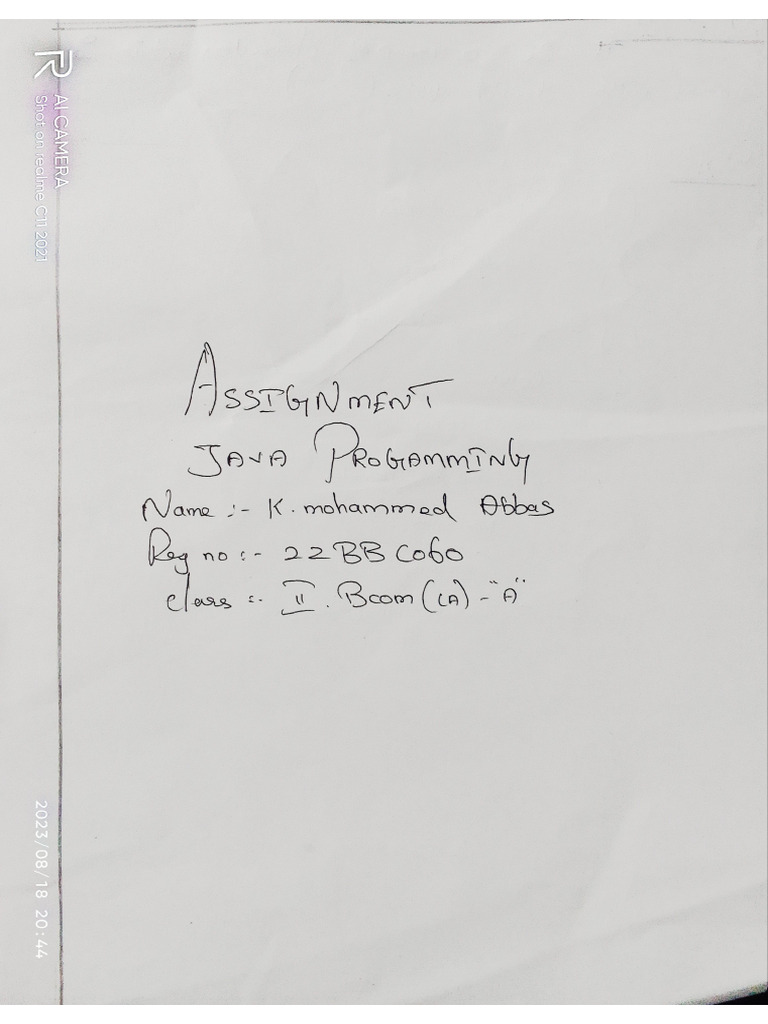 ASSIGNMENT
JAVA PROGAMMING
Name :- K. mohammed Abbas
Reg no :- 22BBC060
class :- II. Bcom (CA) - "A"
R
AI CAMERA
Shot on realme C11 2021
2023/08/18 20:44